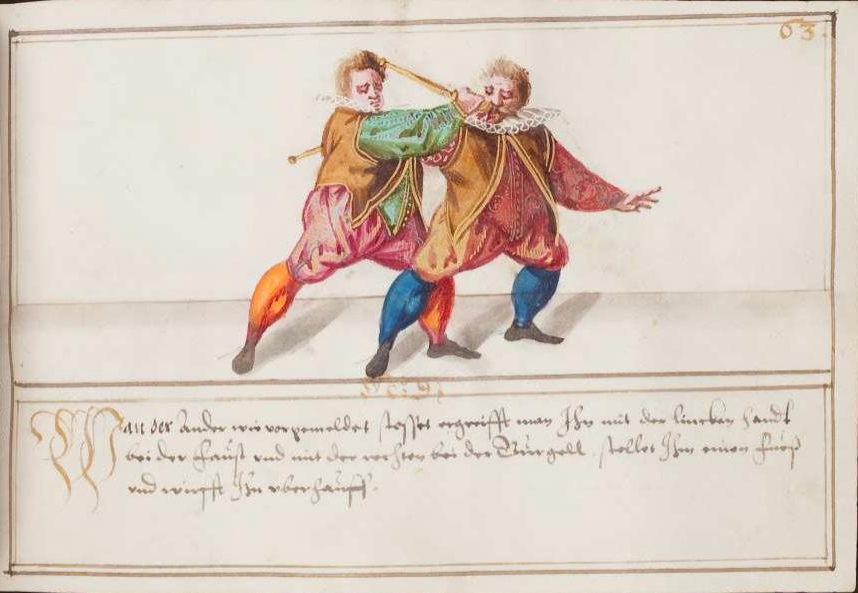 63
Wan der Ander wie vorgemeldet stosset ergreifft man Ihn mit der lincken Handt
bei der Faust vnd mit der rechten bei der Gurgell, stellet Ihm einen Fueß
vnd wirfft Ihn vberhauff.